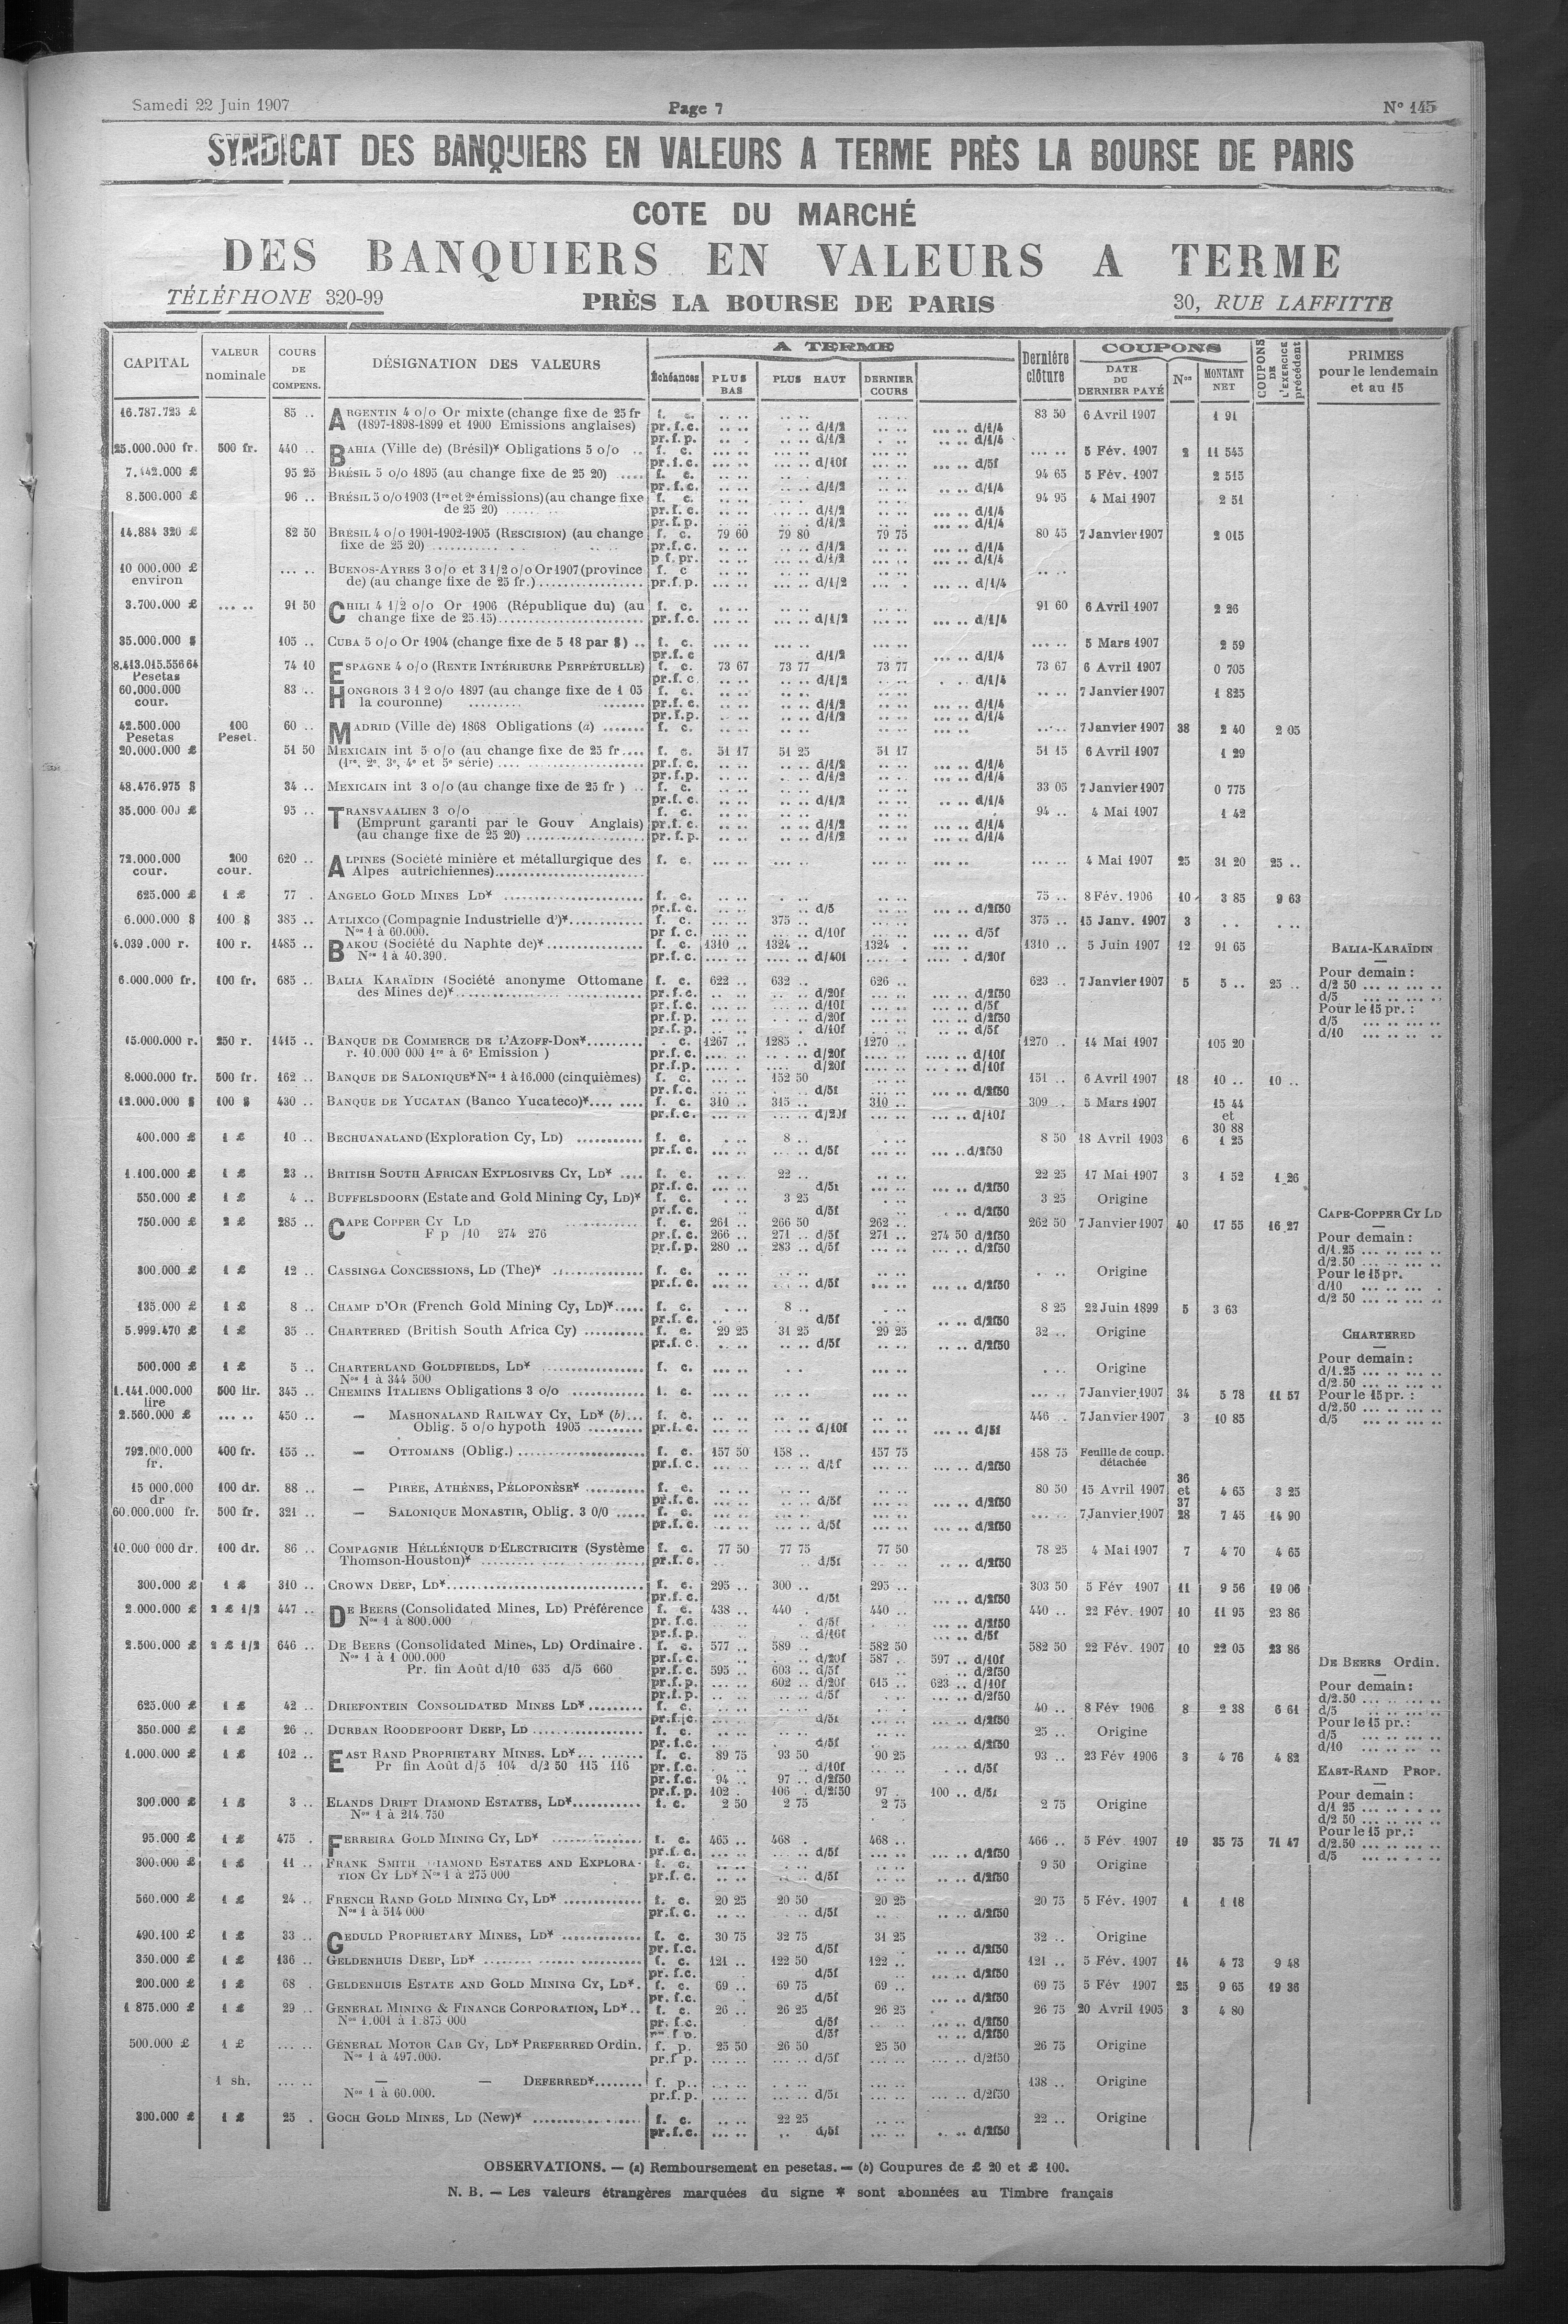 Samedi 22 Juin 1907 Page 7 N° 145
SYNDICAT DES BANQUIERS EN VALEURS A TERME PRÈS LA BOURSE DE PARIS
COTE DU MARCHÉ
DES BANQUIERS EN VALEURS A TERME
TÉLÉPHONE 320-99 PRÈS LA BOURSE DE PARIS 30, RUE LAFFITTE
CAPITAL VALEUR nominale COURS DE COMPENS. DÉSIGNATION DES VALEURS A TERME Échéances PLUS BAS PLUS HAUT DERNIER COURS Dernière clôture COUPONS DATE DU DERNIER PAYÉ Nos MONTANT NET COUPONS DE L'EXERCICE précédent PRIMES pour le lendemain et au 15
16.787.723 £ 85 .. ARGENTIN 4 o/o Or mixte (change fixe de 25 fr f. c. 83 50 6 Avril 1907 1 91
(1897-1898-1899 et 1900 Emissions anglaises) pr.f.c. d/1/2 d/1/4
pr.f.p. d/1/2 d/1/4
25.000.000 fr. 500 fr. 440 .. BAHIA (Ville de) (Brésil)* Obligations 5 o/o .. f. c. 5 Fév. 1907 2 11 545
pr.f.c. d/10f d/5f
7.442.000 £ 95 25 BRÉSIL 5 o/o 1895 (au change fixe de 25 20) f. c. 94 65 5 Fév. 1907 2 515
pr.f.c. d/1/2 d/1/4
8.500.000 £ 96 .. BRÉSIL 5 o/o 1903 (1re et 2e émissions) (au change fixe f. c. 94 95 4 Mai 1907 2 51
de 25 20) pr.f.c. d/1/2 d/1/4
pr.f.p. d/1/2 d/1/4
14.884 320 £ 82 50 BRÉSIL 4 o/o 1901-1902-1905 (RESCISION) (au change f. c. 79 60 79 80 79 75 80 45 7 Janvier 1907 2 015
fixe de 25 20) pr.f.c. d/1/2 d/1/4
p f.pr. d/1/2 d/1/4
10 000.000 £ BUENOS-AYRES 3 o/o et 3 1/2 o/o Or 1907 (province f. c
environ de) (au change fixe de 25 fr.) pr.f.p. d/1/2 d/1/4
3.700.000 £ 91 50 CHILI 4 1/2 o/o Or 1906 (République du) (au f. c. 91 60 6 Avril 1907 2 26
change fixe de 25.15) pr.f.c. d/1/2 d/1/4
35.000.000 $ 105 .. CUBA 5 o/o Or 1904 (change fixe de 5 18 par $) .. f. c. 5 Mars 1907 2 59
pr.f.c d/1/2 d/1/4
8.413.015.556 64 74 10 ESPAGNE 4 o/o (RENTE INTÉRIEURE PERPÉTUELLE) f. c. 73 67 73 77 73 77 73 67 6 Avril 1907 0 705
Pesetas pr.f.c. d/1/2 d/1/4
60.000.000 83 .. HONGROIS 3 1 2 o/o 1897 (au change fixe de 1 05 f. c. 7 Janvier 1907 1 825
cour. la couronne) pr.f.c. d/1/2 d/1/4
pr.f.p. d/1/2 d/1/4
42.500.000 100 60 .. MADRID (Ville de) 1868 Obligations (a) f. c. 7 Janvier 1907 38 2 40 2 05
Pesetas Peset.
20.000.000 £ 51 50 MEXICAIN int 5 o/o (au change fixe de 25 fr f. c. 51 17 51 25 51 17 51 15 6 Avril 1907 1 29
(1re, 2e, 3e, 4e et 5e série) pr.f.c. d/1/2 d/1/4
pr.f.p. d/1/2 d/1/4
48.476.975 $ 34 .. MEXICAIN int 3 o/o (au change fixe de 25 fr ) .. f. c. 33 05 7 Janvier 1907 0 775
pr.f.c. d/1/2 d/1/4
35.000 000 £ 95 .. TRANSVAALIEN 3 o/o f. c. 94 .. 4 Mai 1907 1 42
(Emprunt garanti par le Gouv Anglais) pr.f.c. d/1/2 d/1/4
(au change fixe de 25 20) pr.f.p. d/1/2 d/1/4
72.000.000 200 620 .. ALPINES (Société minière et métallurgique des f. c. 4 Mai 1907 25 31 20 25 ..
cour. cour. Alpes autrichiennes)
625.000 £ 1 £ 77 . ANGELO GOLD MINES LD* f. c. 75 .. 8 Fév. 1906 10 3 85 9 63
pr.f.c. d/5 d/2f50
6.000.000 $ 100 $ 385 .. ATLIXCO (Compagnie Industrielle d')* f. c. 375 .. 375 .. 15 Janv. 1907 3
Nos 1 à 60.000. pr f.c. d/10f d/5f
4.039.000 r. 100 r. 1485 .. BAKOU (Société du Naphte de)* f. c. 1310 .. 1324 .. 1324 . 1310 .. 5 Juin 1907 12 91 65 BALIA-KARAÏDIN
Nos 1 à 40.390. pr.f.c. d/40f d/20f
Pour demain :
6.000.000 fr. 100 fr. 685 .. BALIA KARAÏDIN (Société anonyme Ottomane f. c. 622 .. 632 .. 626 .. 623 .. 7 Janvier 1907 5 5 .. 25 .. d/2 50
des Mines de)* pr.f.c. d/20f d/2f50 d/5
pr.f.c. d/10f d/5f Pour le 15 pr. :
pr.f.p. d/20f d/2f50 d/5
pr.f.p. d/10f d/5f d/10
15.000.000 r. 250 r. 1415 .. BANQUE DE COMMERCE DE L'AZOFF-DON* . c. 1267 .. 1285 .. 1270 .. 1270 .. 14 Mai 1907 105 20
r. 10.000 000 1re à 6e Emission ) pr.f.c. d/20f d/10f
pr.f.p. d/20f d/10f
8.000.000 fr. 500 fr. 162 .. BANQUE DE SALONIQUE* Nos 1 à 16.000 (cinquièmes) f. c. 152 50 151 .. 6 Avril 1907 18 10 .. 10 ..
pr.f.c. d/5f d/2f50
12.000.000 $ 100 $ 430 .. BANQUE DE YUCATAN (Banco Yucateco)* f. c. 310 .. 315 .. 310 .. 309 .. 5 Mars 1907 15 44
pr.f.c. d/20f d/10f et
30 88
400.000 £ 1 £ 10 .. BECHUANALAND (Exploration Cy, LD) f. c. 8 .. 8 50 18 Avril 1903 6 1 25
pr.f.c. d/5f d/2f50
1.100.000 £ 1 £ 23 .. BRITISH SOUTH AFRICAN EXPLOSIVES CY, LD* f. c. 22 .. 22 25 17 Mai 1907 3 1 52 1 26
pr.f.c. d/5f d/2f50
550.000 £ 1 £ 4 .. BUFFELSDOORN (Estate and Gold Mining Cy, LD)* f. c. 3 25 3 25 Origine
pr.f.c. d/5f d/2f50 CAPE-COPPER CY LD
750.000 £ 2 £ 285 .. CAPE COPPER CY LD f. c. 261 .. 266 50 262 .. 262 50 7 Janvier 1907 40 17 55 16 27
F p /10 274 276 pr.f.c. 266 .. 271 .. d/5f 271 .. 274 50 d/2f50 Pour demain :
pr.f.p. 280 .. 283 .. d/5f d/2f50 d/1.25
d/2.50
300.000 £ 1 £ 12 .. CASSINGA CONCESSIONS, LD (The)* f. c. Origine Pour le 15 pr.
pr.f.c. d/5f d/2f50 d/10
d/2 50
135.000 £ 1 £ 8 .. CHAMP D'OR (French Gold Mining Cy, LD)* f. c. 8 .. 8 25 22 Juin 1899 5 3 63
pr.f.c. d/5f d/2f50
5.999.470 £ 1 £ 35 .. CHARTERED (British South Africa Cy) f. c. 29 25 31 25 29 25 32 .. Origine CHARTERED
pr.f.c. d/5f d/2f50
Pour demain :
500.000 £ 1 £ 5 .. CHARTERLAND GOLDFIELDS, LD* f. c. Origine d/1.25
Nos 1 à 344 500 d/2.50
1.141.000.000 500 lir. 345 .. CHEMINS ITALIENS Obligations 3 o/o f. c. 7 Janvier 1907 34 5 78 11 57 Pour le 15 pr. :
lire d/2.50
2.560.000 £ 450 .. — MASHONALAND RAILWAY CY, LD* (b) f. c. 446 .. 7 Janvier 1907 3 10 85 d/5
Oblig. 5 o/o hypoth 1905 pr.f.c. d/10f d/5f
792.000.000 400 fr. 155 .. — OTTOMANS (Oblig.) f. c. 157 50 158 .. 157 75 158 75 Feuille de coup. détachée
fr. pr.f.c. d/5f d/2f50
15 000.000 100 dr. 88 .. — PIREE, ATHÈNES, PÉLOPONÈSE* f. c. 80 50 15 Avril 1907 36 et 37 4 65 3 25
dr pr.f.c. d/5f d/2f50
60.000.000 fr. 500 fr. 321 .. — SALONIQUE MONASTIR, Oblig. 3 0/0 f. c. 7 Janvier 1907 28 7 45 14 90
pr.f.c. d/5f d/2f50
10.000 000 dr. 100 dr. 86 .. COMPAGNIE HÉLLÉNIQUE D'ELECTRICITE (Système f. c. 77 50 77 75 77 50 78 25 4 Mai 1907 7 4 70 4 65
Thomson-Houston)* pr.f.c. d/5f d/2f50
300.000 £ 1 £ 310 .. CROWN DEEP, LD* f. c. 295 .. 300 .. 295 .. 303 50 5 Fév 1907 11 9 56 19 06
pr.f.c. d/5f d/2f50
2.000.000 £ 2 £ 1/2 447 .. DE BEERS (Consolidated Mines, LD) Préférence f. c. 438 .. 440 . 440 .. 440 .. 22 Fév. 1907 10 11 95 23 86
Nos 1 à 800.000 pr.f.c. d/5f d/2f50
pr.f.p. d/10f d/5f
2.500.000 £ 2 £ 1/2 646 .. DE BEERS (Consolidated Mines, LD) Ordinaire . f. c. 577 .. 589 .. 582 50 582 50 22 Fév. 1907 10 22 05 23 86
Nos 1 à 1 000.000 pr.f.c. d/20f 587 . 597 .. d/10f DE BEERS Ordin.
Pr. fin Août d/10 635 d/5 660 pr.f.c. 595 .. 603 .. d/5f d/2f50
pr.f.p. 602 .. d/20f 615 .. 623 .. d/10f Pour demain :
pr.f.p. d/5f d/2f50 d/2.50
625.000 £ 1 £ 42 .. DRIEFONTEIN CONSOLIDATED MINES LD* f. c. 40 .. 8 Fév 1906 8 2 38 6 61 d/5
pr.f.c. d/5f d/2f50 Pour le 15 pr. :
350.000 £ 1 £ 26 .. DURBAN ROODEPOORT DEEP, LD f. c. 25 .. Origine d/5
pr.f.c. d/5f d/2f50 d/10
1.000.000 £ 1 £ 102 .. EAST RAND PROPRIETARY MINES, LD* f. c. 89 75 93 50 90 25 93 .. 23 Fév 1906 3 4 76 4 82
Pr fin Août d/5 104 d/2 50 115 116 pr.f.c. d/10f d/5f EAST-RAND PROP.
pr.f.c. 94 .. 97 .. d/2f50
pr.f.p. 102 . 106 . d/2f50 97 . 100 .. d/5f Pour demain :
300.000 £ 1 £ 3 .. ELANDS DRIFT DIAMOND ESTATES, LD* f. c. 2 50 2 75 2 75 2 75 Origine d/1 25
Nos 1 à 214.750 d/2 50
Pour le 15 pr. :
95.000 £ 1 £ 475 . FERREIRA GOLD MINING CY, LD* f. c. 465 .. 468 . 468 .. 466 .. 5 Fév. 1907 19 35 75 71 47 d/2.50
pr.f.c. d/5f d/2f50 d/5
300.000 £ 1 £ 11 .. FRANK SMITH DIAMOND ESTATES AND EXPLORA- f. c. 9 50 Origine
TION CY LD* Nos 1 à 275 000 pr.f.c. d/5f d/2f50
560.000 £ 1 £ 24 .. FRENCH RAND GOLD MINING CY, LD* f. c. 20 25 20 50 20 25 20 75 5 Fév. 1907 1 1 18
Nos 1 à 514 000 pr.f.c. d/5f d/2f50
490.100 £ 1 £ 33 .. GEDULD PROPRIETARY MINES, LD* f. c. 30 75 32 75 31 25 32 .. Origine
pr.f.c. d/5f d/2f50
350.000 £ 1 £ 136 .. GELDENHUIS DEEP, LD* f. c. 121 .. 122 50 122 .. 121 .. 5 Fév. 1907 14 4 73 9 48
pr.f.c. d/5f d/2f50
200.000 £ 1 £ 68 . GELDENHUIS ESTATE AND GOLD MINING CY, LD*. f. c. 69 .. 69 75 69 .. 69 75 5 Fév 1907 25 9 65 19 36
pr.f.c. d/5f d/2f50
1 875.000 £ 1 £ 29 .. GENERAL MINING & FINANCE CORPORATION, LD*.. f. c. 26 .. 26 25 26 25 26 75 20 Avril 1905 3 4 80
Nos 1.001 à 1.875 000 pr.f.c. d/5f d/2f50
pr f.p. d/5f d/2f50
500.000 £ 1 £ GÉNERAL MOTOR CAB CY, LD* PREFERRED Ordin. f. p. 25 50 26 50 25 50 26 75 Origine
Nos 1 à 497.000. pr.f p. d/5f d/2f50
1 sh. — — DEFERRED* f. p. 138 .. Origine
Nos 1 à 60.000. pr.f.p. d/5f d/2f50
300.000 £ 1 £ 25 . GOCH GOLD MINES, LD (New)* f. c. 22 25 22 .. Origine
pr.f.c. d/5f d/2f50
OBSERVATIONS. — (a) Remboursement en pesetas. — (b) Coupures de £ 20 et £ 100.
N. B. — Les valeurs étrangères marquées du signe * sont abonnées au Timbre français